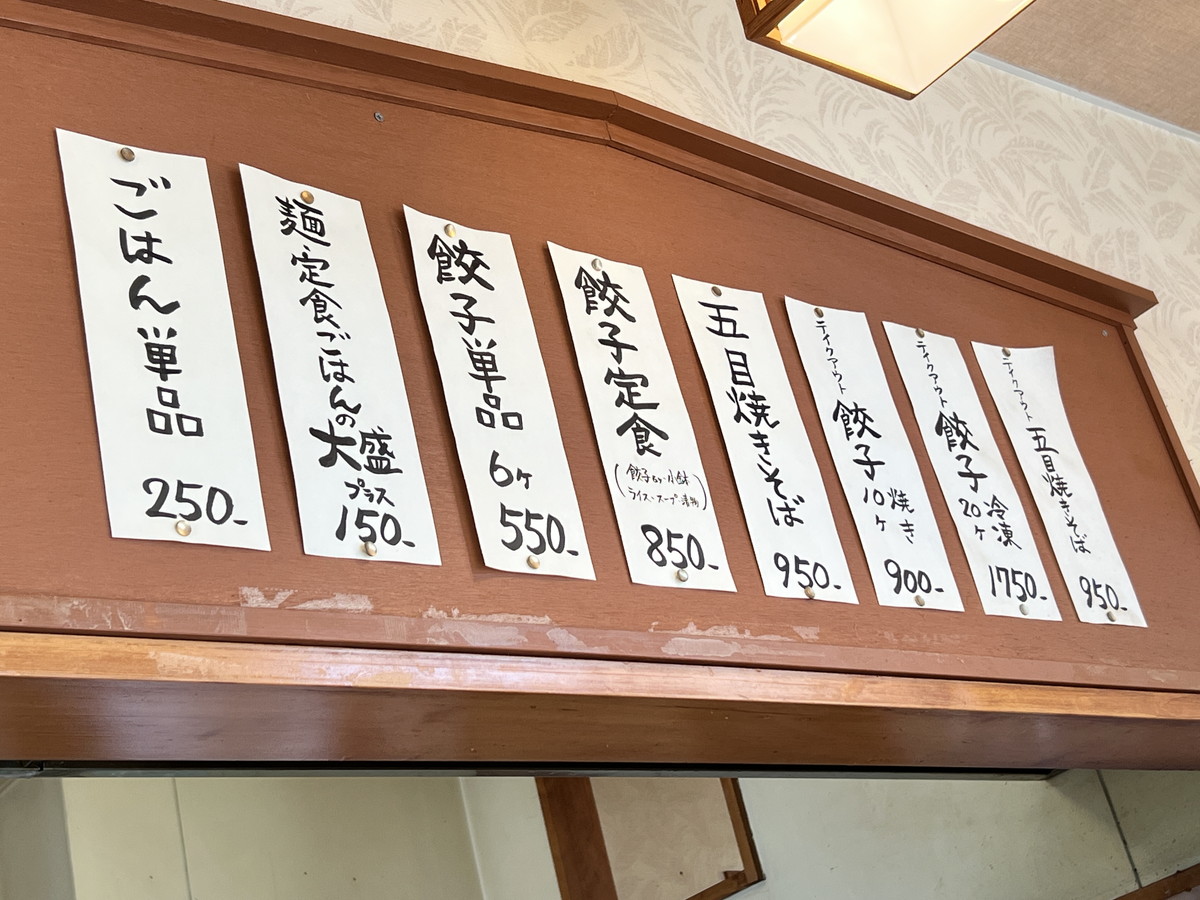 ごはん単品
250-
麺・定食ごはんの
大盛
プラス
150-
餃子単品
6ヶ
550-
餃子定食
(餃子6ヶ・小鉢
ライス・スープ・漬物)
850-
五目焼きそば
950-
テイクアウト
餃子
焼き
10ヶ
900-
テイクアウト
餃子
冷凍
20ヶ
1750-
テイクアウト
五目焼きそば
950-